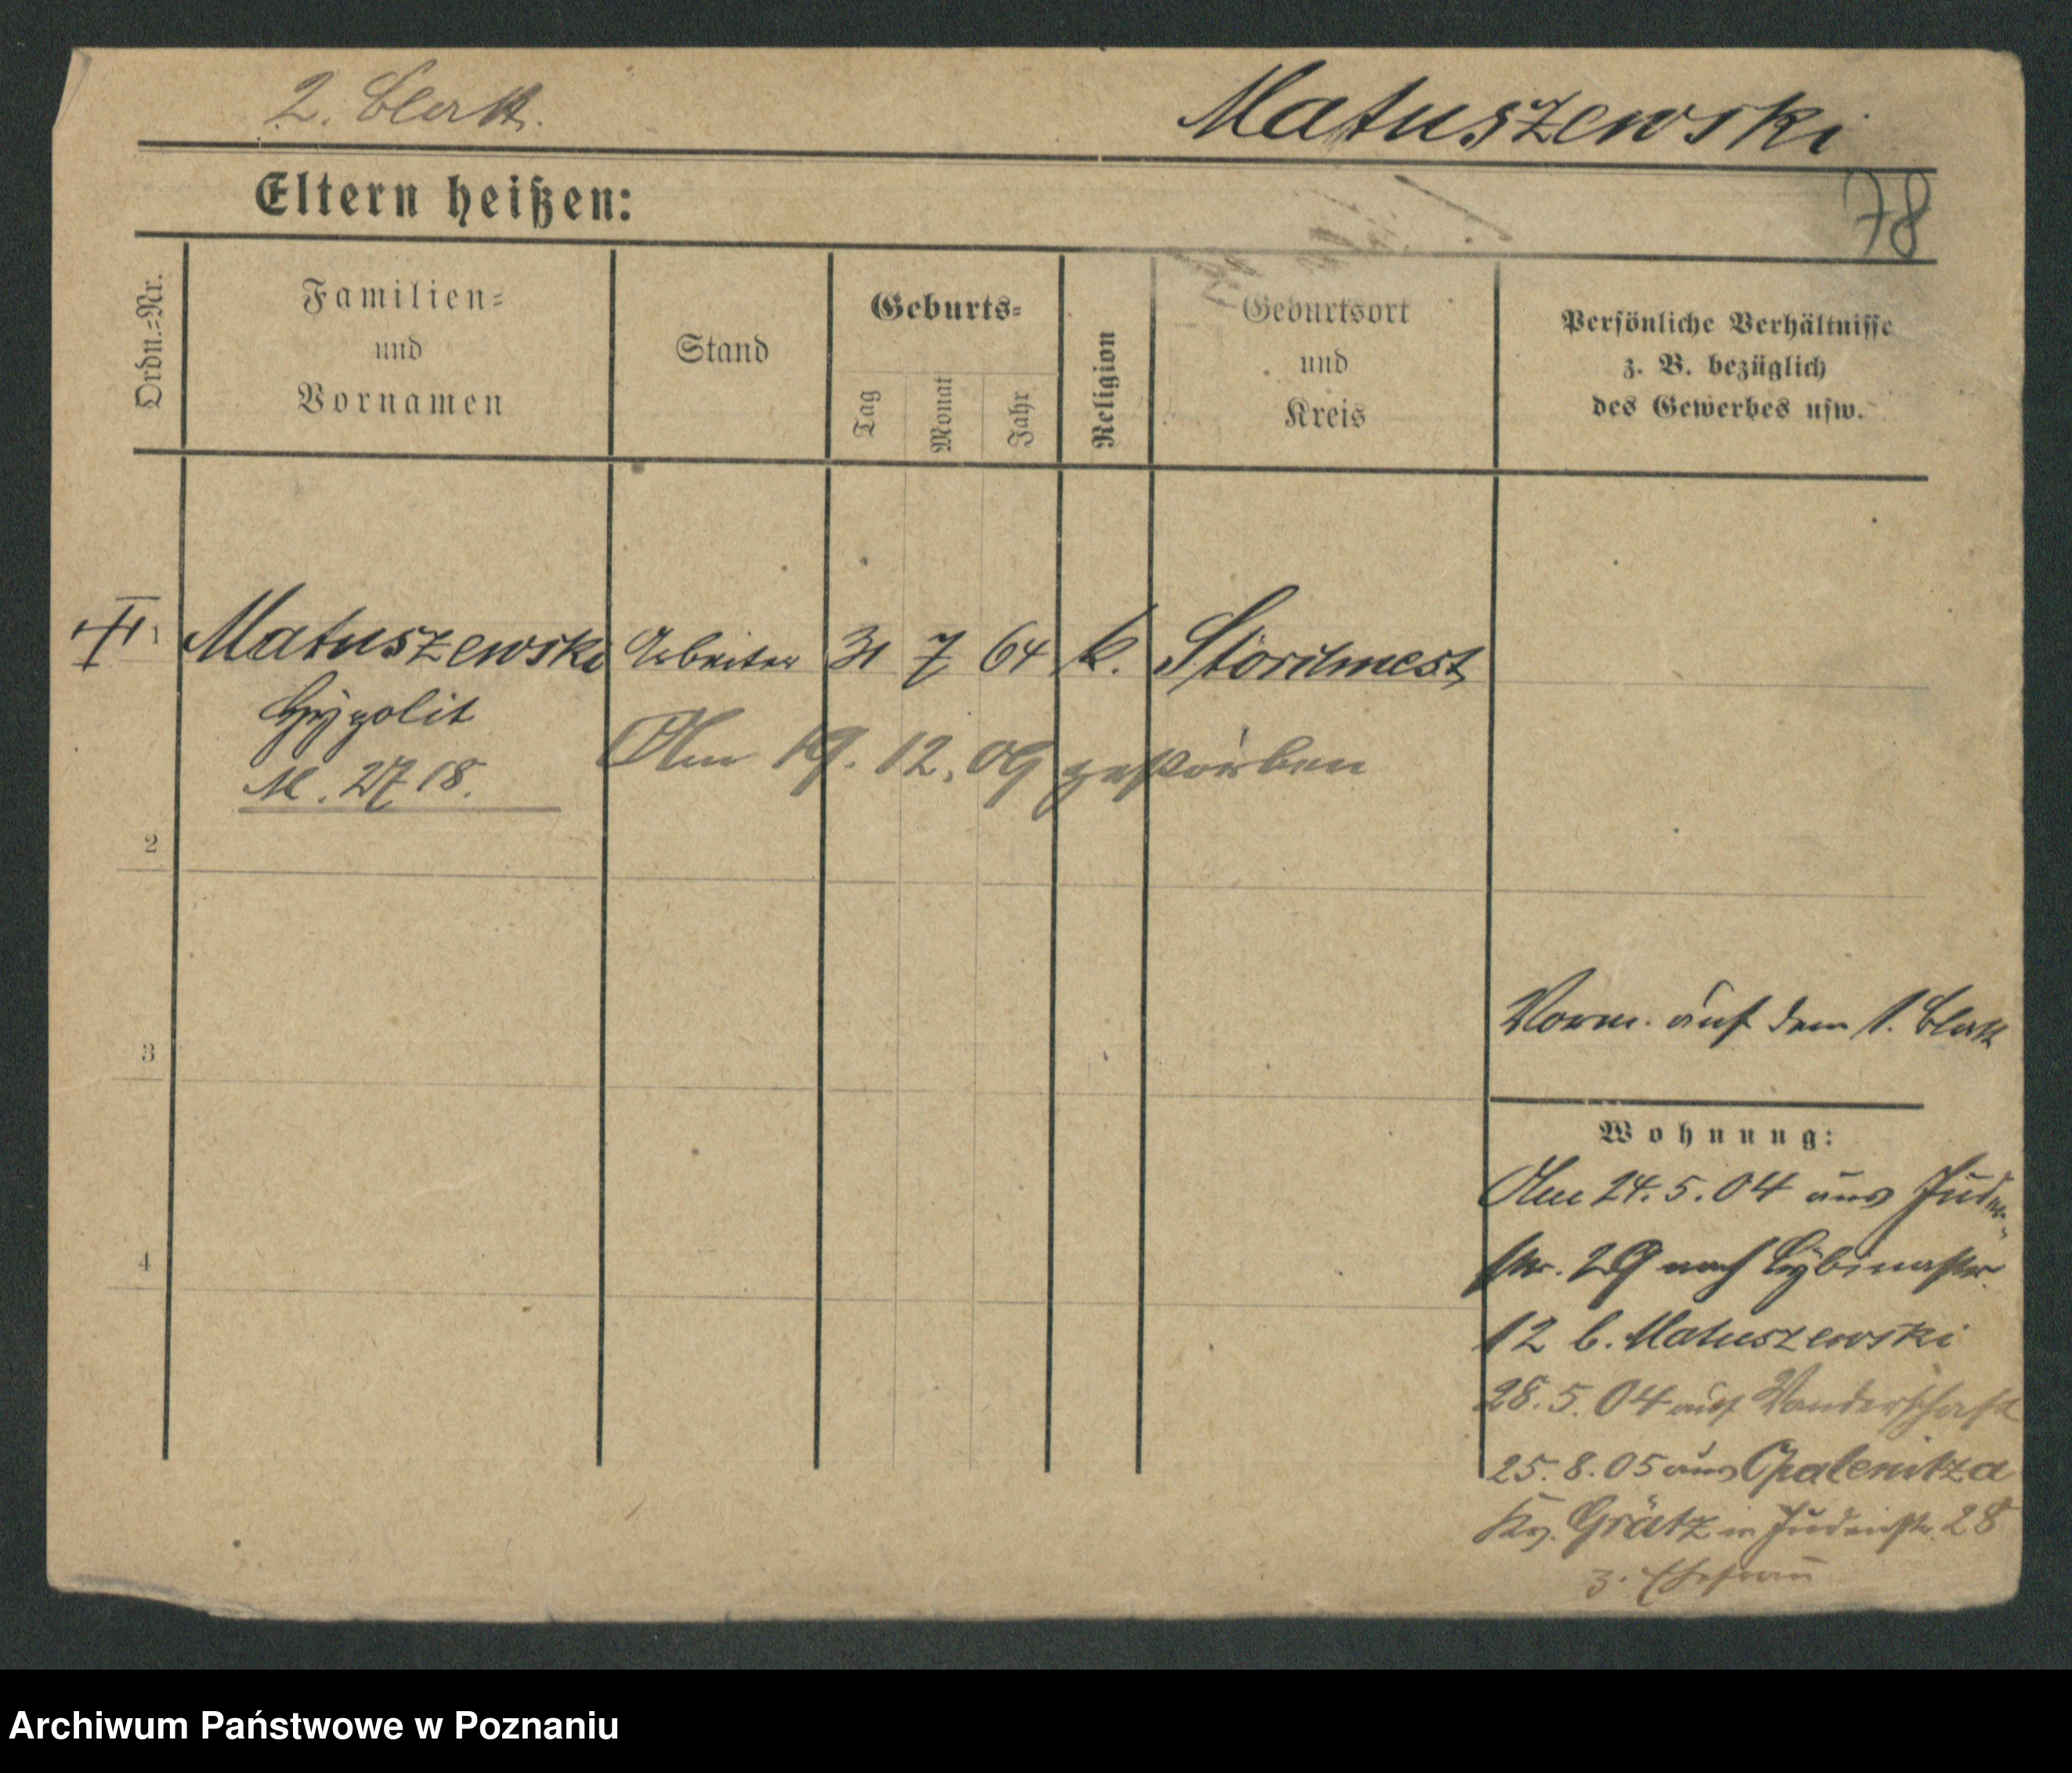 2. Blatt.
Matuszewski
Eltern heißen:
78
Ordn.=Nr.
Familien=
und
Vornamen
Stand
Geburts=
Tag
Monat
Jahr
Religion
Geburtsort
und
Kreis
Persönliche Verhältnisse
z. B. bezüglich
des Gewerbes usw.
1 Matuszewski Arbeiter 31 7 64 k. Storchnest
Hypolit
Am 19. 12. 09 gestorben
M. 2718.
2
3
Verm. auf dem 1. Blatt
Wohnung:
Am 24. 5. 04 aus Juden-
str. 29 nach Cybinastr.
4
12 b. Matuszewski
28. 5. 04 auf Wanderschaft
25. 8. 05 aus Opalenitza
Kr. Grätz n Judenstr. 28
z. Ehefrau
Archiwum Państwowe w Poznaniu